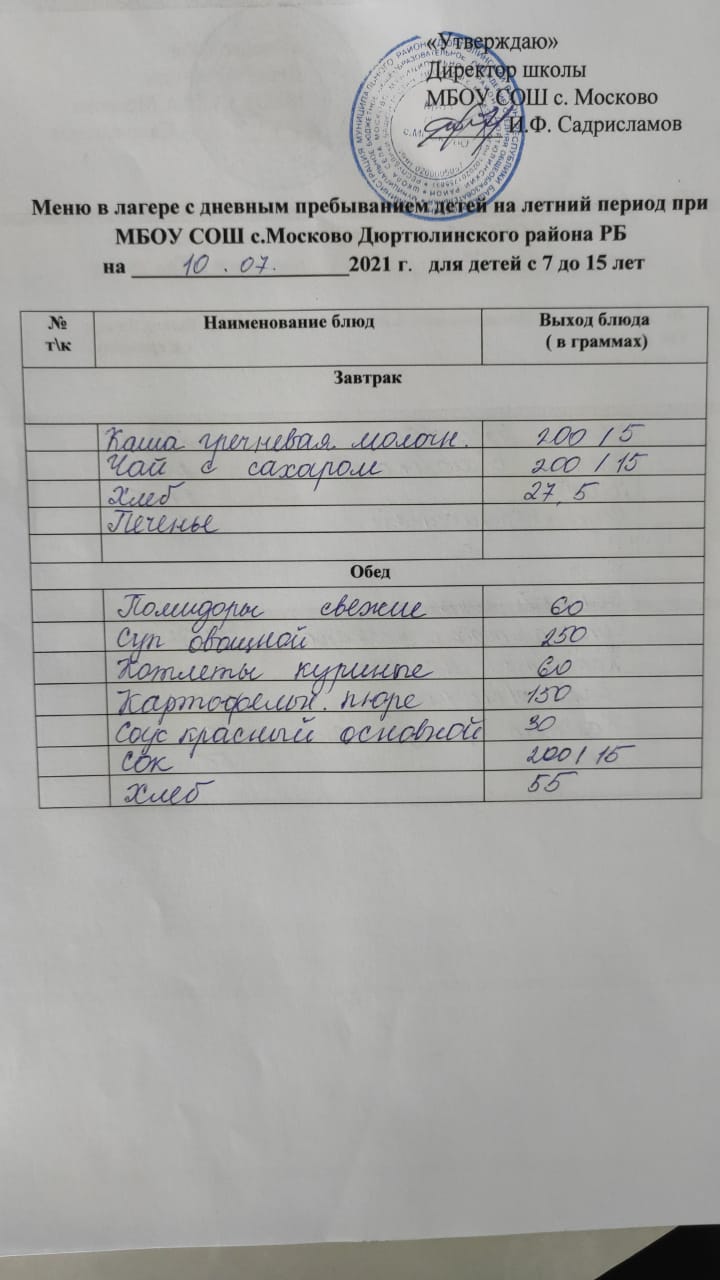 «Утверждаю»
Директор школы
МБОУ СОШ с. Москово
И.Ф. Садрисламов
Меню в лагере с дневным пребыванием детей на летний период при
МБОУ СОШ с.Москово Дюртюлинского района РБ
на 10.07. 2021 г. для детей с 7 до 15 лет
№ т\к Наименование блюд Выход блюда ( в граммах)
Завтрак
Каша гречневая молочн. 200 / 5
Чай с сахаром 200 / 15
Хлеб 27,5
Печенье
Обед
Помидоры свежие 60
Суп овощной 250
Котлеты куриные 60
Картофельн. пюре 150
Соус красный основной 30
Сок 200 / 15
Хлеб 55